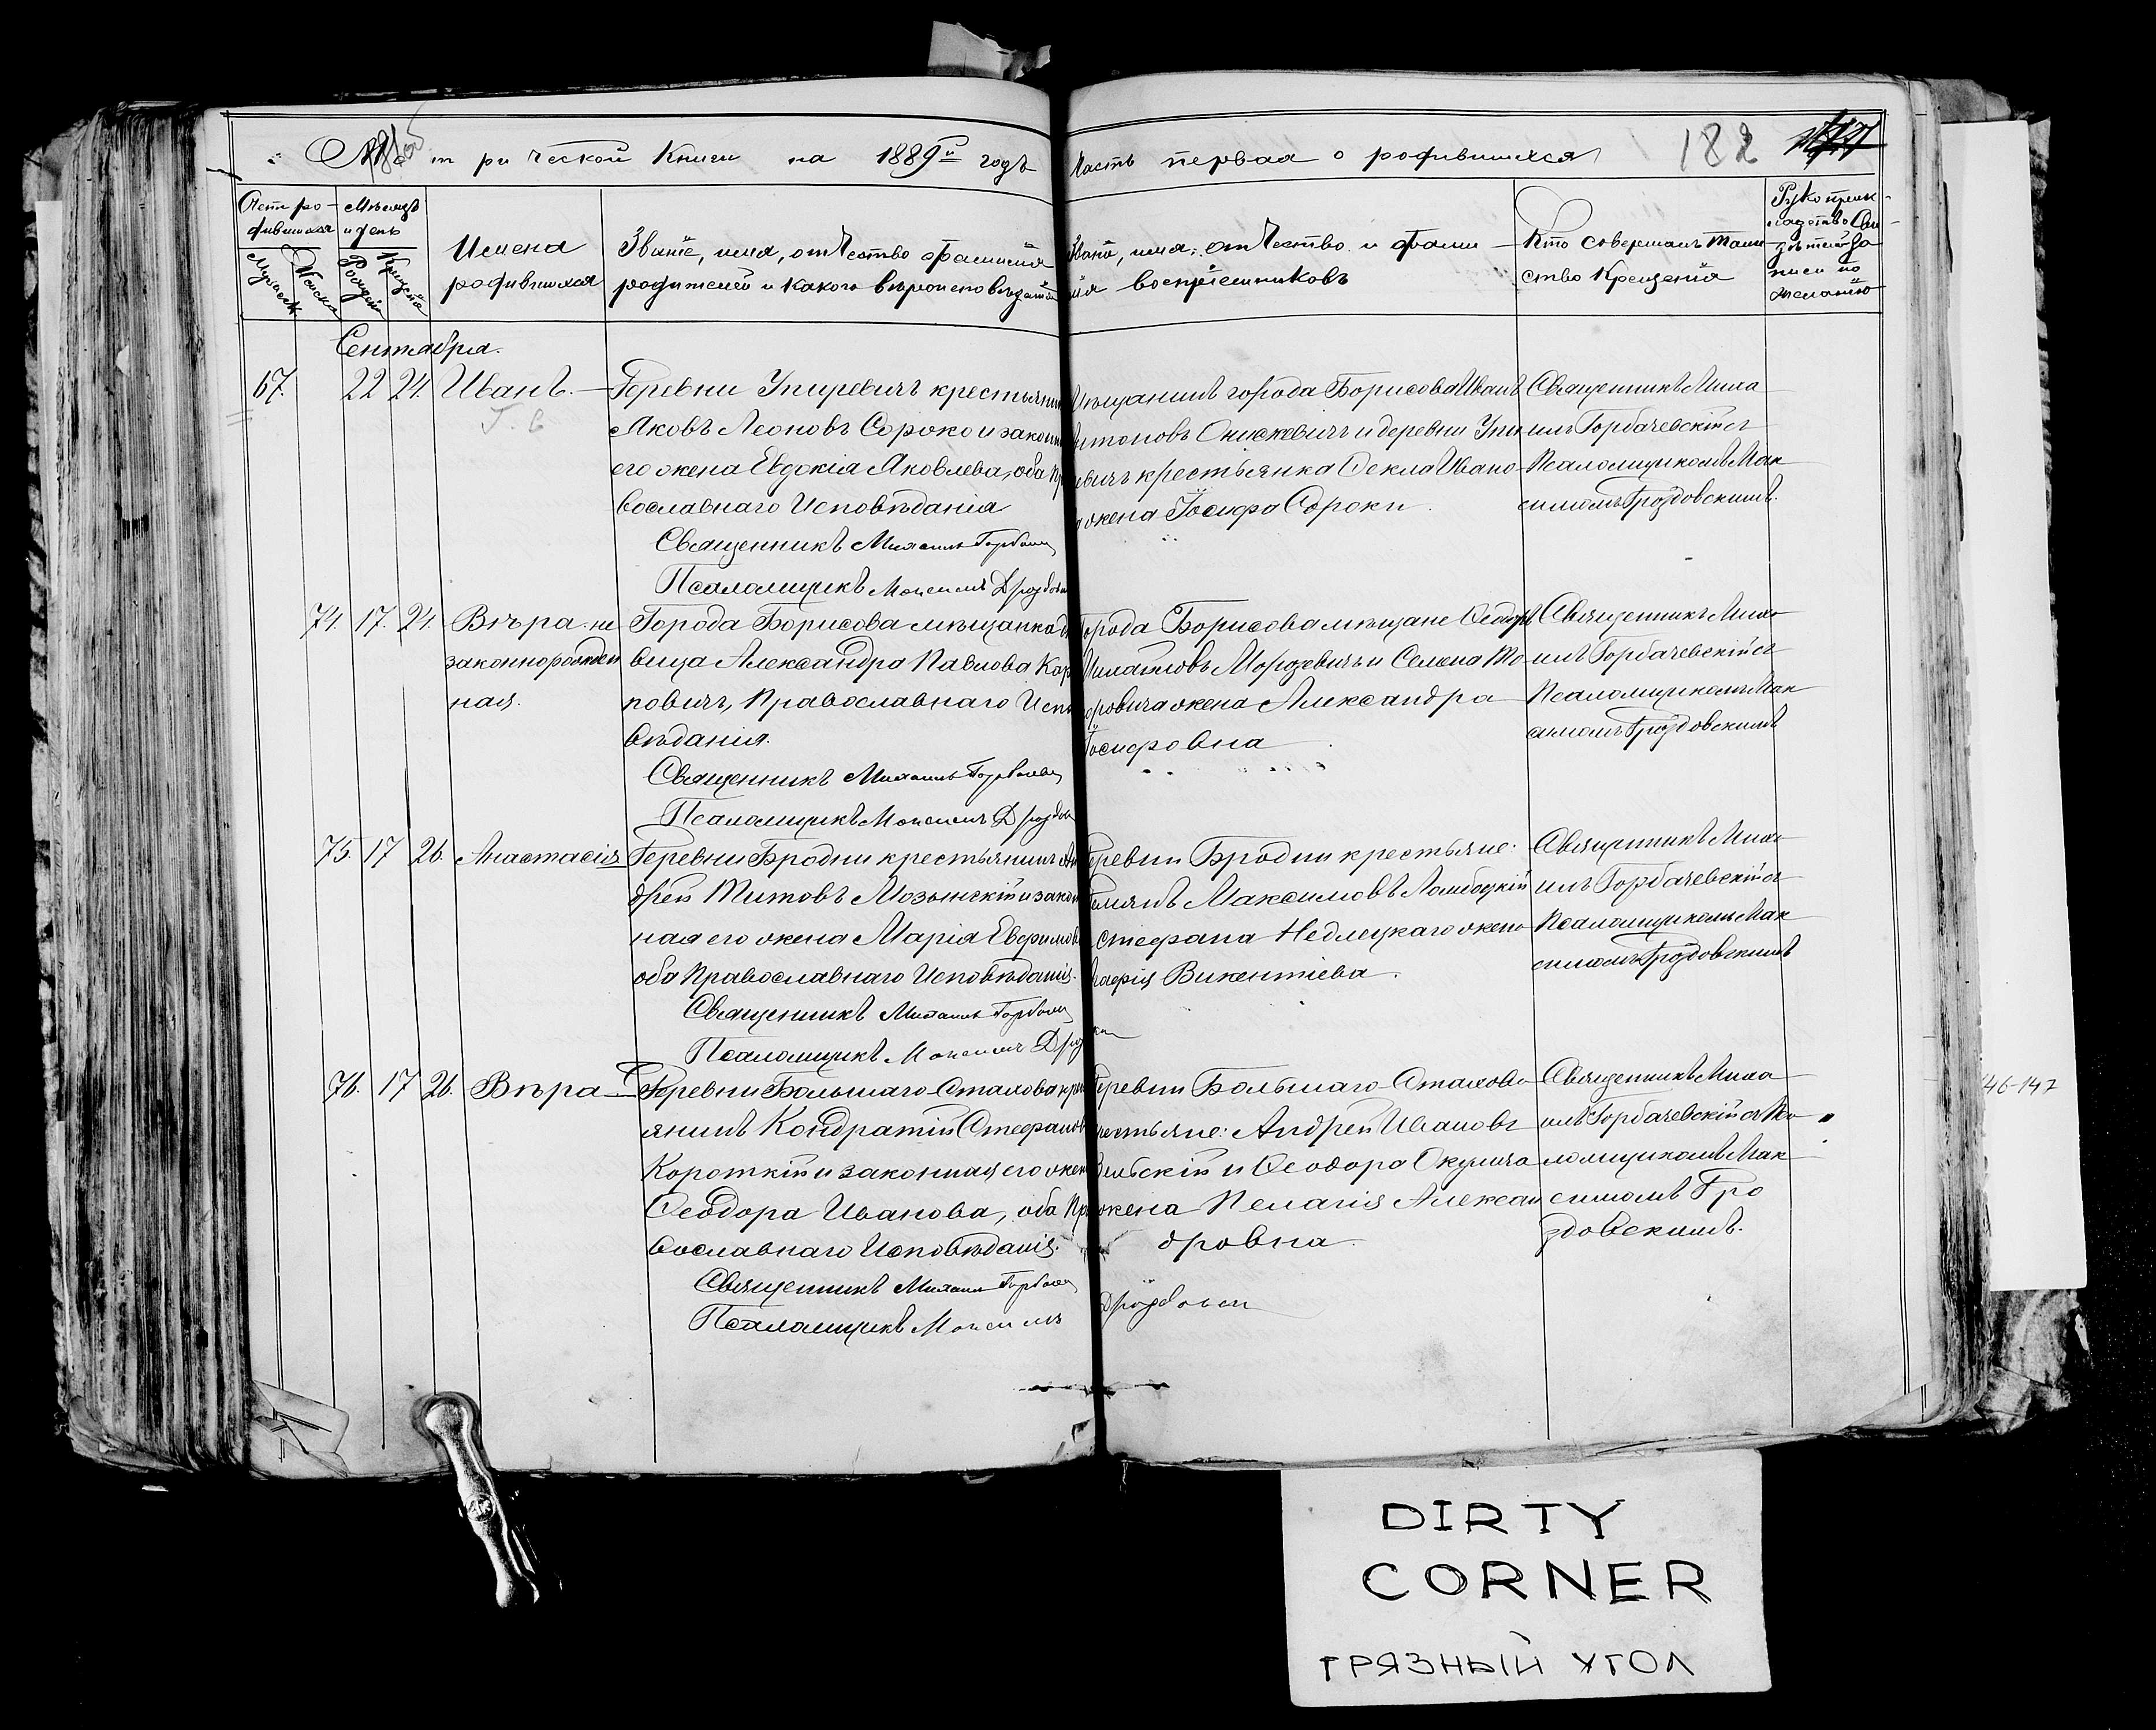 Метрической Книги на 1889й годъ
Часть первая о родившихся
182
Счетъ родившихся
Мужеск
Женска
Мѣсяцъ и день
Рожденія
Крещенія
Имена
родившихся
Званіе, имя, отчество фамилія
родителей и какого вѣроисповѣданія
Званіе, имя, отчество и фами-
лія воспріемниковъ
Кто совершалъ Таин
ство Крещенія
Рукоприк-
ладство Сви-
дѣтелей за
писи по
желанію
Сентября.
67. 22 24. Иванъ.
Деревни Упиревичъ крестьянин
Яковъ Леоновъ Сороко и закон
его жена Евдокія Яковлева, оба Пр
вославнаго Исповѣданія
Священникъ Михаилъ
Псаломщикъ Максимъ
Мѣщанинъ города Борисова Иванъ
Антоновъ Онискевичъ и деревни Упи
ревичъ крестьянка Ѳекла Ивано-
жена Іосифа Сороки.
Священникъ Миха
илъ Горбачевскій съ
Псаломщикомъ Мак
симомъ Дроздовскимъ.
74. 17. 24. Вѣра не
законнорожден
ная.
Города Борисова мѣщанка дѣ
вица Александра Павлова Кар
повичъ, Православнаго Испо
вѣданія.
Священникъ Михаилъ
Псаломщикъ Максимъ
Города Борисова мѣщане Ѳеодоръ
Михайловъ Морозевичъ и Семена То-
доровича жена Александра
Іосифовна
Священникъ Миха-
илъ Горбачевскій съ
Псаломщикомъ Мак
симомъ Дроздовскимъ
75. 17 26. Анастасія
Деревни Бродни крестьянинъ Ан
дрей Титовъ Мозынскій и закон
ная его жена Марія Евфимов
оба Православнаго Исповѣданія.
Священникъ Михаилъ
Псаломщикъ Максимъ
Деревни Бродни крестьяне:
Максимовъ
Стефана Недлецкаго жена
Викентіева.
Священникъ Миха-
илъ Горбачевскій съ
Псаломщикомъ Мак
симомъ Дроздовскимъ
76. 17 26. Вѣра
Деревни Большаго-Стахова кре
янинъ Кондратій Стефанов
Короткій и законная его жен
Ѳеодора Иванова, оба Пра
вославнаго Исповѣданія.
Священникъ Михаилъ
Псаломщикъ Максимъ
Деревни Большаго-Стахова
крестьяне: Андрей Ивановъ
и Ѳеодора Окулича
жена Пелагія Алексан
дровна.
Священникъ Миха
илъ Горбачевскій съ Пса
ломщикомъ Мак
симомъ Дро
здовскимъ.
46-147
DIRTY
CORNER
ГРЯЗНЫЙ УГОЛ